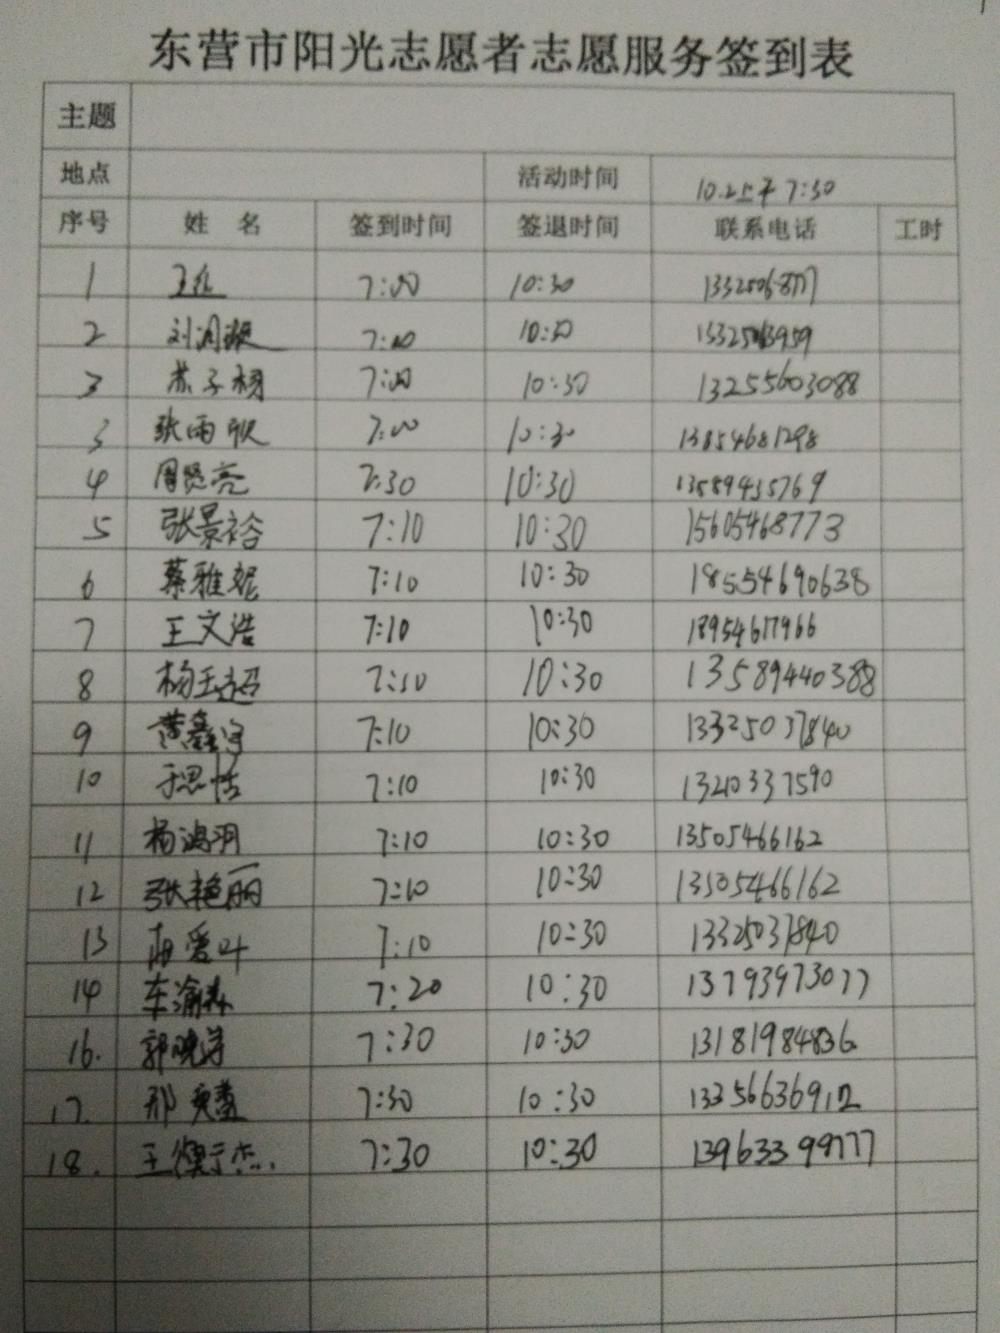 东营市阳光志愿者志愿服务签到表
主题
地点 活动时间 10.2上午7:30
序号 姓 名 签到时间 签退时间 联系电话 工时
1 7:00 10:30
2 7:00 10:30
3 苏子杨 7:00 10:30 13255603088
3 张雨欣 7:00 10:30 13854681298
4 周贤亮 7:30 10:30 13589435769
5 张景裕 7:10 10:30 15605468773
6 蔡雅妮 7:10 10:30 18554690638
7 王文浩 7:10 10:30 18954617966
8 杨玉超 7:10 10:30 13589440388
9 黄鑫宇 7:10 10:30 13325037840
10 于思恬 7:10 10:30 13210337590
11 杨鸿羽 7:10 10:30 13505466162
12 张艳丽 7:10 10:30 13505466162
13 7:10 10:30 13325037840
14 车渝森 7:20 10:30 13793973077
16. 7:30 10:30 13181984836
17. 7:30 10:30
18. 7:30 10:30 13963399777